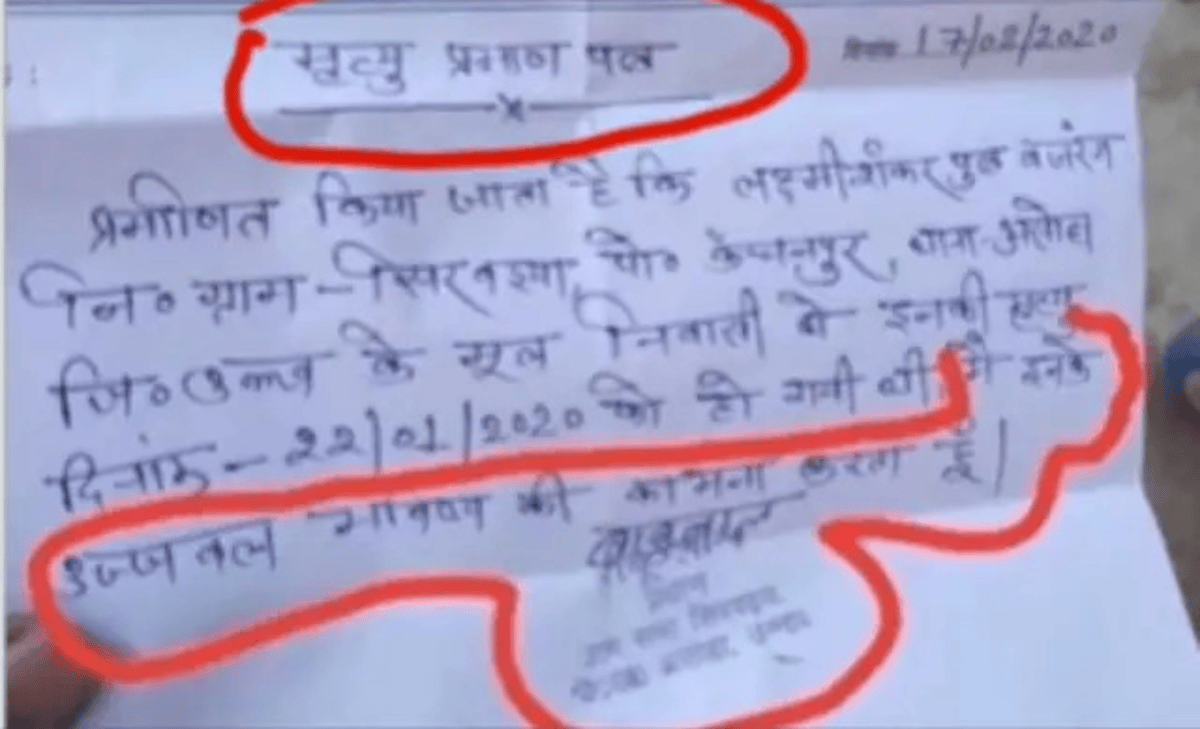 मृत्यु प्रमाण पत्र
दिनांक 17/02/2020
प्रमाणित किया जाता है कि लक्ष्मीशंकर पुत्र बजरंग
नि० ग्राम - सिरवइया, पो० कंचनपुर, थाना-असोहा
जि० उन्नाव के मूल निवासी थे इनकी मृत्यु
दिनांक - 22/01/2020 को हो गयी थी मैं इनके
उज्जवल भविष्य की कामना करता हूँ।
बाबूलाल
ग्राम सभा